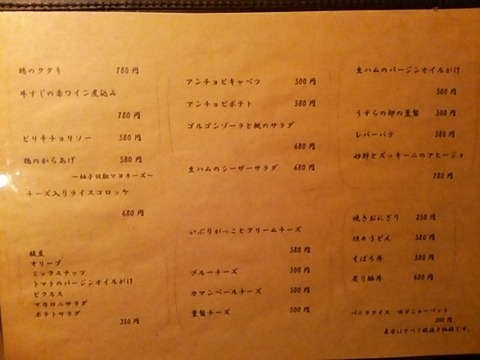 鶏のタタキ 780円
牛すじの赤ワイン煮込み
780円
ピリ辛チョリソー 580円
鶏のからあげ 580円
～柚子胡椒マヨネーズ～
チーズ入りライスコロッケ
680円
枝豆
オリーブ
ミックスナッツ
トマトのバージンオイルがけ
ピクルス
マカロニサラダ
ポテトサラダ
350円
アンチョビキャベツ 500円
アンチョビポテト 580円
ゴルゴンゾーラと桃のサラダ
680円
生ハムのシーザーサラダ 680円
いぶりがっことクリームチーズ
580円
ブルーチーズ 500円
カマンベールチーズ 500円
燻製チーズ 500円
生ハムのバージンオイルがけ
500円
うずらの卵の燻製 500円
レバーパテ 580円
砂肝とズッキーニのアヒージョ
780円
焼きおにぎり 250円
うどん 580円
そぼろ丼 580円
炙り豚丼 680円
バニラアイス ゆずシャーベット
300円
表示はすべて税抜き価格です。